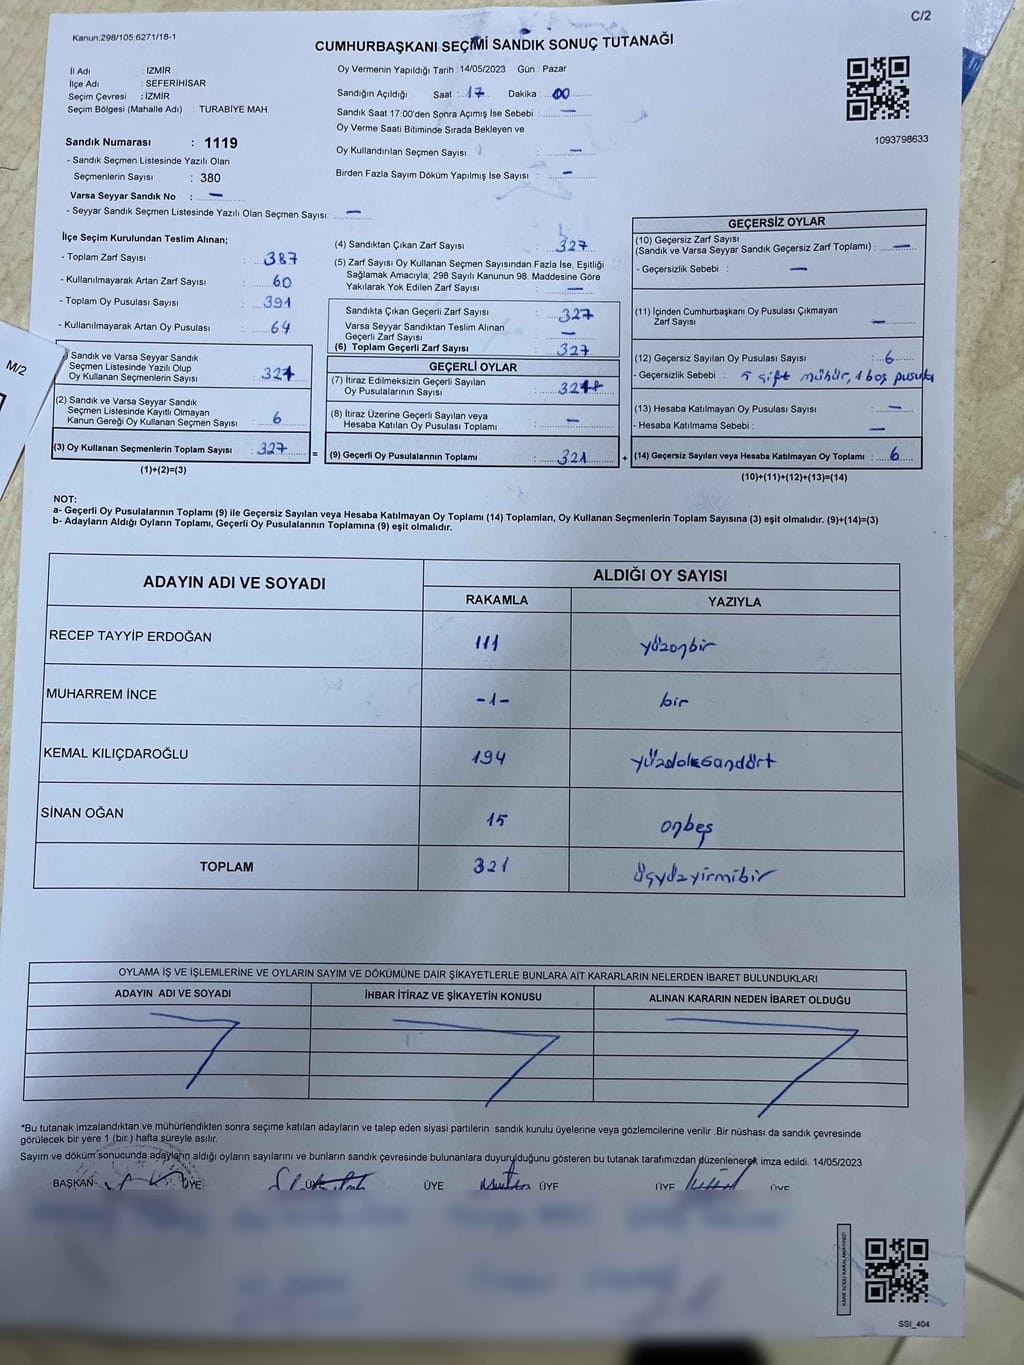 C/2
Kanun,298/105,6271/18-1
CUMHURBAŞKANI SEÇİMİ SANDIK SONUÇ TUTANAĞI
İl Adı : İZMİR
İlçe Adı : SEFERİHİSAR
Seçim Çevresi : İZMİR
Seçim Bölgesi (Mahalle Adı) : TURABİYE MAH.
Sandık Numarası : 1119
- Sandık Seçmen Listesinde Yazılı Olan
Seçmenlerin Sayısı : 380
Varsa Seyyar Sandık No : —
- Seyyar Sandık Seçmen Listesinde Yazılı Olan Seçmen Sayısı: —
Oy Vermenin Yapıldığı Tarih :14/05/2023 Gün : Pazar
Sandığın Açıldığı Saat : 17 Dakika : 00
Sandık Saat 17:00'den Sonra Açımış İse Sebebi : —
Oy Verme Saati Bitiminde Sırada Bekleyen ve
Oy Kullandırılan Seçmen Sayısı : —
Birden Fazla Sayım Döküm Yapılmış İse Sayısı : —
1093798633
İlçe Seçim Kurulundan Teslim Alınan;
- Toplam Zarf Sayısı : 387
- Kullanılmayarak Artan Zarf Sayısı : 60
- Toplam Oy Pusulası Sayısı : 391
- Kullanılmayarak Artan Oy Pusulası : 64
) Sandık ve Varsa Seyyar Sandık
Seçmen Listesinde Yazılı Olup
Oy Kullanan Seçmenlerin Sayısı : 321
(2) Sandık ve Varsa Seyyar Sandık
Seçmen Listesinde Kayıtlı Olmayan
Kanun Gereği Oy Kullanan Seçmen Sayısı : 6
(3) Oy Kullanan Seçmenlerin Toplam Sayısı : 327
(1)+(2)=(3)
(4) Sandıktan Çıkan Zarf Sayısı : 327
(5) Zarf Sayısı Oy Kullanan Seçmen Sayısından Fazla İse, Eşitliği
Sağlamak Amacıyla, 298 Sayılı Kanunun 98. Maddesine Göre
Yakılarak Yok Edilen Zarf Sayısı : —
Sandıkta Çıkan Geçerli Zarf Sayısı : 327
Varsa Seyyar Sandıktan Teslim Alınan
Geçerli Zarf Sayısı : —
(6) Toplam Geçerli Zarf Sayısı : 327
GEÇERLİ OYLAR
(7) İtiraz Edilmeksizin Geçerli Sayılan
Oy Pusulalarının Sayısı : 321
(8) İtiraz Üzerine Geçerli Sayılan veya
Hesaba Katılan Oy Pusulası Toplamı : —
= (9) Geçerli Oy Pusulalarının Toplamı : 321 +
GEÇERSİZ OYLAR
(10) Geçersiz Zarf Sayısı
(Sandık ve Varsa Seyyar Sandık Geçersiz Zarf Toplamı) : —
- Geçersizlik Sebebi : —
(11) İçinden Cumhurbaşkanı Oy Pusulası Çıkmayan
Zarf Sayısı : —
(12) Geçersiz Sayılan Oy Pusulası Sayısı : 6
- Geçersizlik Sebebi : 5 çift mühür, 1 boş pusula
(13) Hesaba Katılmayan Oy Pusulası Sayısı : —
- Hesaba Katılmama Sebebi : —
(14) Geçersiz Sayılan veya Hesaba Katılmayan Oy Toplamı : 6
(10)+(11)+(12)+(13)=(14)
NOT:
a- Geçerli Oy Pusulalarının Toplamı (9) ile Geçersiz Sayılan veya Hesaba Katılmayan Oy Toplamı (14) Toplamları, Oy Kullanan Seçmenlerin Toplam Sayısına (3) eşit olmalıdır. (9)+(14)=(3)
b- Adayların Aldığı Oyların Toplamı, Geçerli Oy Pusulalarının Toplamına (9) eşit olmalıdır.
ADAYIN ADI VE SOYADI ALDIĞI OY SAYISI
RAKAMLA YAZIYLA
RECEP TAYYİP ERDOĞAN 111 yüzonbir
MUHARREM İNCE -1- bir
KEMAL KILIÇDAROĞLU 194 yüzdoksandört
SİNAN OĞAN 15 onbeş
TOPLAM 321 üçyüzyirmibir
OYLAMA İŞ VE İŞLEMLERİNE VE OYLARIN SAYIM VE DÖKÜMÜNE DAİR ŞİKAYETLERLE BUNLARA AİT KARARLARIN NELERDEN İBARET BULUNDUKLARI
ADAYIN ADI VE SOYADI İHBAR İTİRAZ VE ŞİKAYETİN KONUSU ALINAN KARARIN NEDEN İBARET OLDUĞU
*Bu tutanak imzalandıktan ve mühürlendikten sonra seçime katılan adayların ve talep eden siyasi partilerin sandık kurulu üyelerine veya gözlemcilerine verilir .Bir nüshası da sandık çevresinde
görülecek bir yere 1 (bir.) hafta süreyle asılır.
Sayım ve döküm sonucunda adayların aldığı oyların sayılarını ve bunların sandık çevresinde bulunanlara duyurulduğunu gösteren bu tutanak tarafımızdan düzenlenerek imza edildi. 14/05/2023
BAŞKAN ÜYE ÜYE ÜYE ÜYE ÜYE ÜYE
SSİ_404
M/2